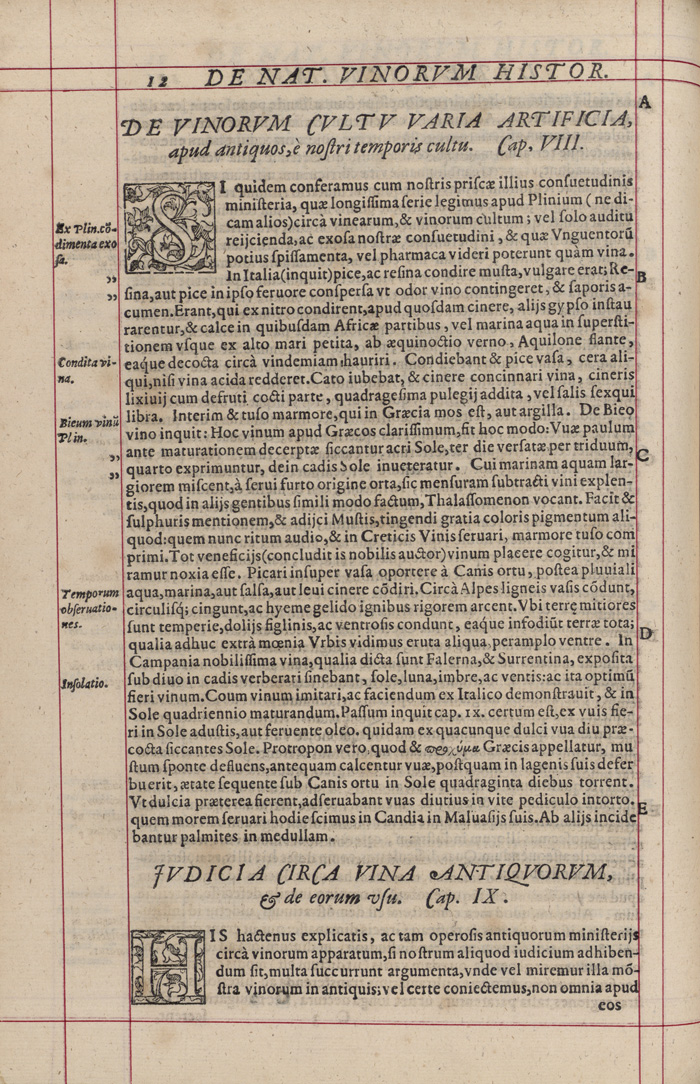 12 DE NAT. VINORVM HISTOR.
A
DE VINORVM CVLTV VARIA ARTIFICIA,
apud antiquos, è nostri temporis cultu. Cap. VIII.
SI quidem conferamus cum nostris priscæ illius consuetudinis
ministeria, quæ longissima serie legimus apud Plinium ( ne di-
cam alios) circà vinearum, & vinorum cultum ; vel solo auditu
reijcienda, ac exosa nostræ consuetudini , & quæ Vnguentorū
potius spissamenta, vel pharmaca videri poterunt quàm vina.
Ex Plin. cō-
dimenta exo
sa.
In Italia (inquit) pice, ac resina condire musta, vulgare erat; Re-
B
„
sina, aut pice in ipso feruore conspersa vt odor vino contingeret, & saporis a-
„
cumen. Erant, qui ex nitro condirent, apud quosdam cinere, alijs gypso instau
rarentur, & calce in quibusdam Africæ partibus , vel marina aqua in supersti-
tionem vsque ex alto mari petita, ab æquinoctio verno , Aquilone flante,
eaque decocta circà vindemiam hauriri. Condiebant & pice vasa , cera ali-
Condita vi-
na.
qui, nisi vina acida redderet. Cato iubebat, & cinere concinnari vina , cineris
lixiuij cum defruti cocti parte , quadragesima pulegij addita , vel salis sexqui
libra. Interim & tuso marmore, qui in Græcia mos est, aut argilla. De Bieo
Bieum vinū
Plin.
vino inquit: Hoc vinum apud Græcos clarissimum, fit hoc modo: Vuæ paulum
„
ante maturationem decerptæ siccantur acri Sole, ter die versatæ per triduum,
C
„
quarto exprimuntur, dein cadis Sole inueteratur. Cui marinam aquam lar-
giorem miscent, à serui furto origine orta, sic mensuram subtracti vini explen-
tis, quod in alijs gentibus simili modo factum, Thalassomenon vocant. Facit &
sulphuris mentionem, & adijci Mustis, tingendi gratia coloris pigmentum ali-
quod: quem nunc ritum audio, & in Creticis Vinis seruari, marmore tuso com
primi. Tot veneficijs (concludit is nobilis auctor) vinum placere cogitur, & mi
ramur noxia esse. Picari insuper vasa oportere à Canis ortu , postea pluuiali
aqua, marina, aut salsa, aut leui cinere cōdiri. Circà Alpes ligneis vasis cōdunt,
Temporum
obseruatio-
nes.
circulisq; cingunt, ac hyeme gelido ignibus rigorem arcent. Vbi terrę mitiores
sunt temperie, dolijs figlinis, ac ventrosis condunt, eaque infodiūt terræ tota;
D
qualia adhuc extrà mœnia Vrbis vidimus eruta aliqua, peramplo ventre. In
Campania nobilissima vina, qualia dicta sunt Falerna, & Surrentina, exposita
sub diuo in cadis verberari sinebant, sole, luna, imbre, ac ventis: ac ita optimū
Insolatio.
fieri vinum. Coum vinum imitari, ac faciendum ex Italico demonstrauit, & in
Sole quadriennio maturandum. Passum inquit cap. ix. certum est, ex vuis fie-
ri in Sole adustis, aut feruente oleo. quidam ex quacunque dulci vua diu præ-
cocta siccantes Sole. Protropon vero, quod & προχύμα Græcis appellatur, mu
stum sponte defluens, antequam calcentur vuæ, postquam in lagenis suis defer
buerit, ætate sequente sub Canis ortu in Sole quadraginta diebus torrent.
Vt dulcia præterea fierent, adseruabant vuas diutius in vite pediculo intorto.
E
quem morem seruari hodie scimus in Candia in Maluasijs suis. Ab alijs incide
bantur palmites in medullam.
JVDICIA CIRCA VINA ANTIQVORVM,
& de eorum vsu. Cap. IX.
HIS hactenus explicatis, ac tam operosis antiquorum ministerijs
circà vinorum apparatum, si nostrum aliquod iudicium adhiben-
dum sit, multa succurrunt argumenta, vnde vel miremur illa mō-
stra vinorum in antiquis; vel certe coniectemus, non omnia apud
eos